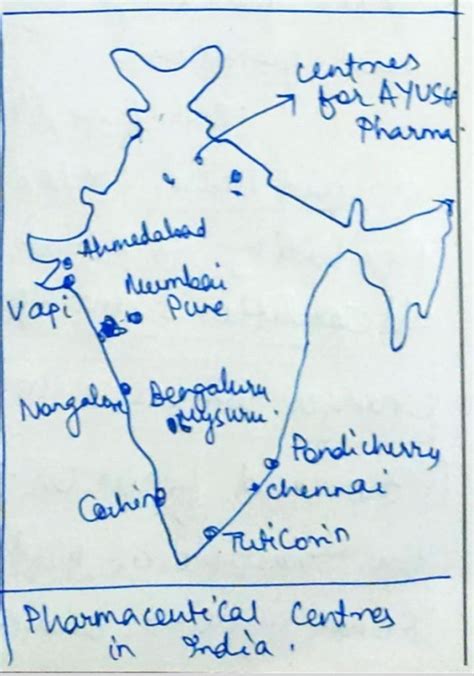 centres
for AYUSH
Pharma
Ahmedabad
Vapi
Mumbai
Pune
Mangalore
Bengaluru
Mysuru.
Pondicherry
Chennai
Cochin
Tuticorin
Pharmaceutical Centres
in India.